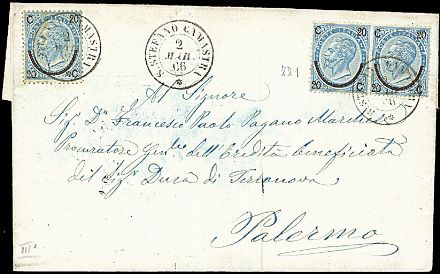 C 20
20 C
S. STEFANO CAMASTRA
2
MAR
66
C 20 C 20
20 C 20 C
221
Al Signore
Sig. Dn Francesco Paolo Pagano Marchese
Procuratore Genle dell'Eredità beneficiata
del Sig. Duca di Terranova
Palermo